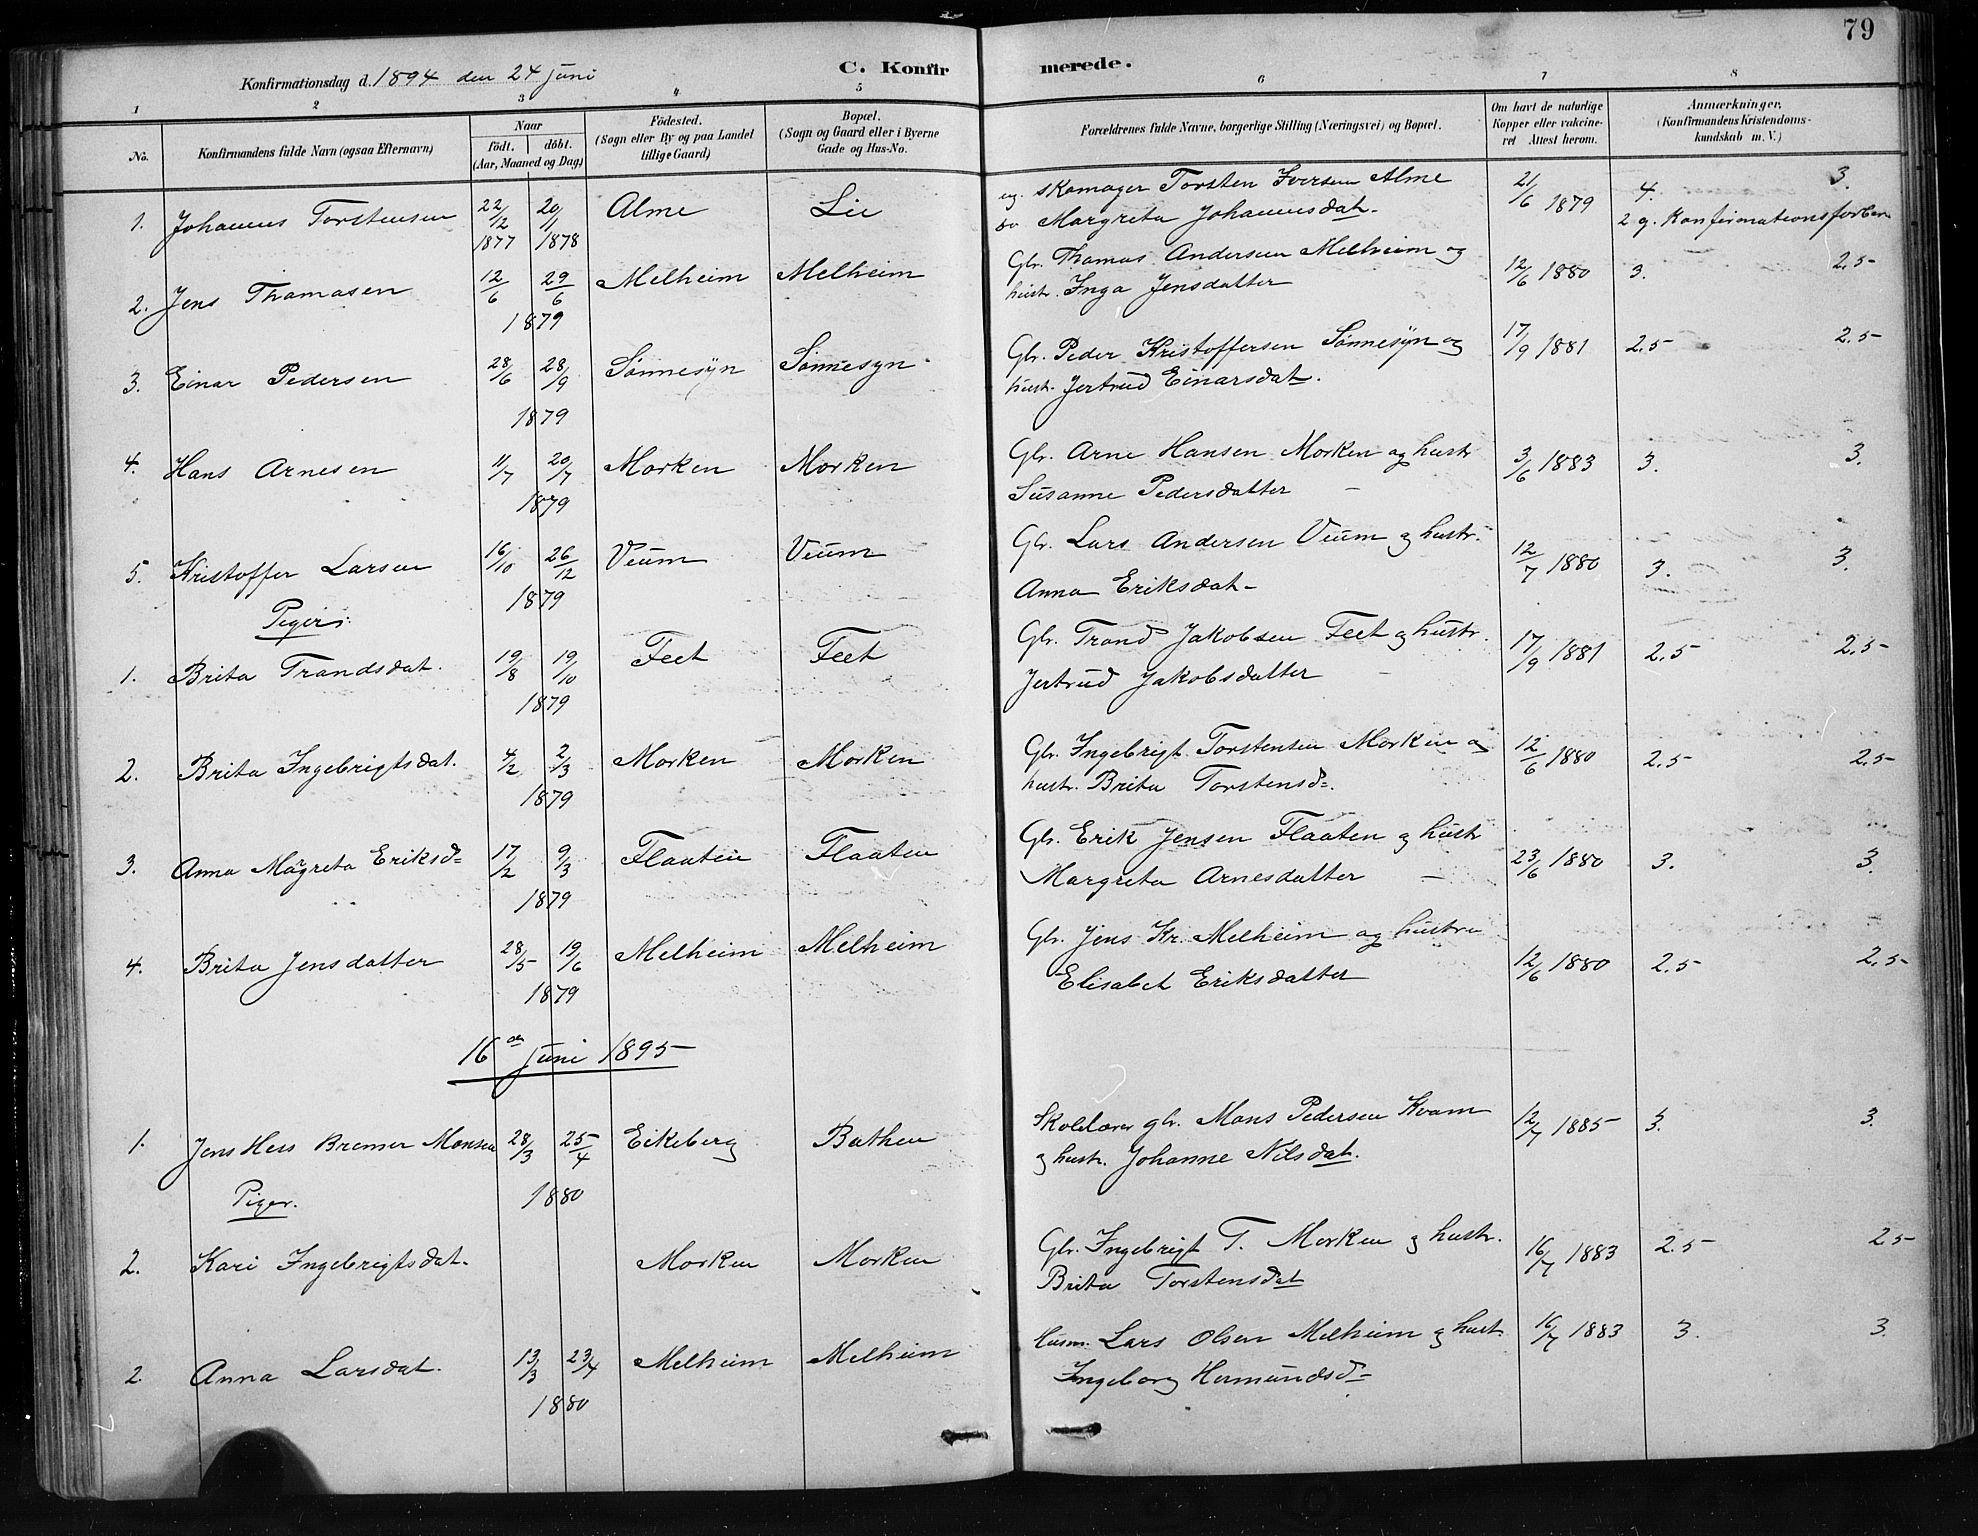 79
C. Konfirmerede.
Konfirmationsdag d. 1894 den 24 juni
1 2 3 4 5 6 7 8
No.
Konfirmandens fulde Navn (ogsaa Efternavn)
Naar
födt. döbt.
(Aar, Maaned og Dag)
Födested.
(Sogn eller By og paa Landet
tillige Gaard)
Bopæl.
(Sogn og Gaard eller i Byerne
Gade og Hus-No.
Forældrenes fulde Navne, borgerlige Stilling (Næringsvei) og Bopæl.
Om havt de naturlige
Kopper eller vakcine-
ret Attest herom.
Anmærkninger,
(Konfirmandens Kristendoms-
kundskab m. V.)
1. Johannes Torstensen 22/12 1877 20/1 1878 Alme Lie
ug. skomager Torsten Iversen Alme
Margreta Johannesdat. 21/6 1879 4. 3.
2 g. Konfirmationsforber
2. Jens Thomasen 12/6 29/6 1879 Melheim Melheim
Gbr. Thomas Andersen Melheim og
hustr. Inga Jensdatter 12/6 1880 3. 2,5
3. Einar Pedersen 28/6 28/9 1879 Sönnesyn Sönnesyn
Gbr. Peder Kristoffersen Sönnesyn og
hustr. Jertrud Einarsdat. 17/9 1881 2.5 2.5
4. Hans Arnesen 11/7 20/7 1879 Morken Morken
Gbr. Arne Hansen Morken og hustr
Susanne Pedersdatter 3/6 1883 3. 3.
5. Kristoffer Larsen 16/10 26/12 1879 Veum Veum
Gbr. Lars Andersen Veum og hustr.
Anna Eriksdat. 12/7 1880 3. 3.
Piger:
1. Brita Trandsdat. 19/8 19/10 1879 Feet Feet
Gbr. Trand Jakobsen Feet og hustr.
Jertrud Jakobsdatter 17/9 1881 2,5 2,5
2. Brita Ingebrigtsdat. 4/2 2/3 1879 Morken Morken
Gbr. Ingebrigt Torstensen Morken og
hustr. Brita Torstensd=. 12/6 1880 2.5 2.5
3. Anna Magreta Eriksd= 17/2 9/3 1879 Flaaten Flaaten
Gbr. Erik Jensen Flaaten og hustr
Margreta Arnesdatter 23/6 1880 3. 3.
4. Brita Jensdatter 28/5 19/6 1879 Melheim Melheim
Gbr. Jens Kr. Melheim og hustru
Elisabet Eriksdatter 12/6 1880 2.5 2.5
16de juni 1895
1. Jens Hess Bremer Monsen 28/3 25/4 1880 Eikeberg Bathen
Skolelærer gbr. Mons Pedersen Kvam
og hustr. Johanne Nilsdat. 12/7 1885 3. 3.
Piger.
2. Kari Ingebrigtsdat. Morken Morken
Gbr. Ingebrigt T. Morken og hustr.
Brita Torstensdat 16/7 1883 2.5 2.5
2. Anna Larsdat. 13/3 23/4 1880 Melheim Melheim
Husm. Lars Olsen Melheim og hust.
Ingeborg Hermundsd= 16/7 1883 3. 3.